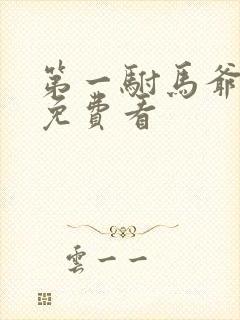 第一駙馬爺
免費看
雲一一